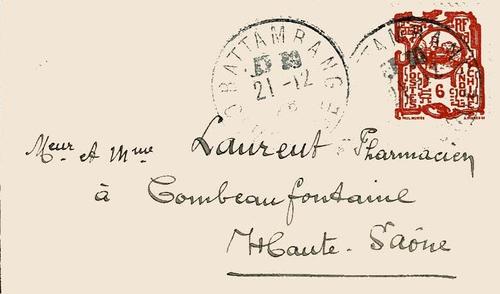 BATTAMBANG
21-12
RF
6
Meur et Mme Laurent Pharmacien
à Combeaufontaine
Haute-Saône